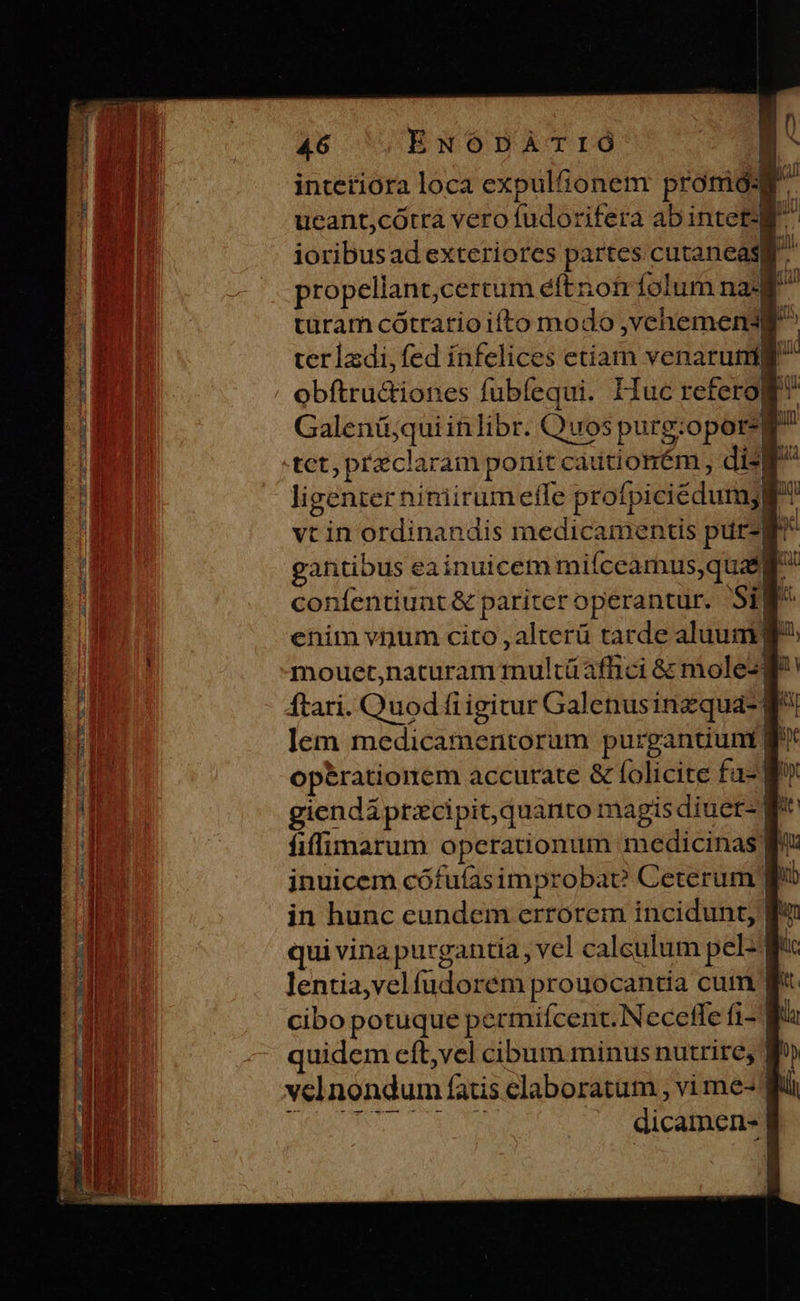 46 ENODATIO
interiora loca expulſionem promo-
ueant,cõtra vero ſudorifera ab inter-
ioribus ad exteriores partes cutaneas
propellant,certum eſt non ſolum na-
turam cõtrario iſto modo ,vehemen-
ter lædi, ſed infelices etiam venarum
obſtructiones ſubſequi. Huc refero
Galenũ,qui in libr. Quos purg:opor-
tet, præclaram ponit cautioném, di-
ligenter nimirum eſſe proſpiciẽdum,
vt in ordinandis medicamentis pur-
gantibus ea inuicem miſceamus,quæ
conſentiunt & pariter operantur. Si
enim vnum cito , alterũ tarde aluum
mouet,naturam multũ affici & mole-
ſtari. Quod ſi igitur Galenus inæqua-
lem medicamentorum purgantium
operationem accurate & ſolicite fu-
giendã præcipit,quanto magis diuer-
ſiſſimarum operationum medicinas
inuicem cõfuſas improbat? Ceterum
in hunc eundem errorem incidunt,
qui vina purgantia, vel calculum pel-
lentia,vel ſudorem prouocantia cum
cibo potuque permiſcent. Neceſſe ſi-
quidem eſt,vel cibum minus nutrire,
vel nondum ſatis elaboratum , vi me-
dicamen-